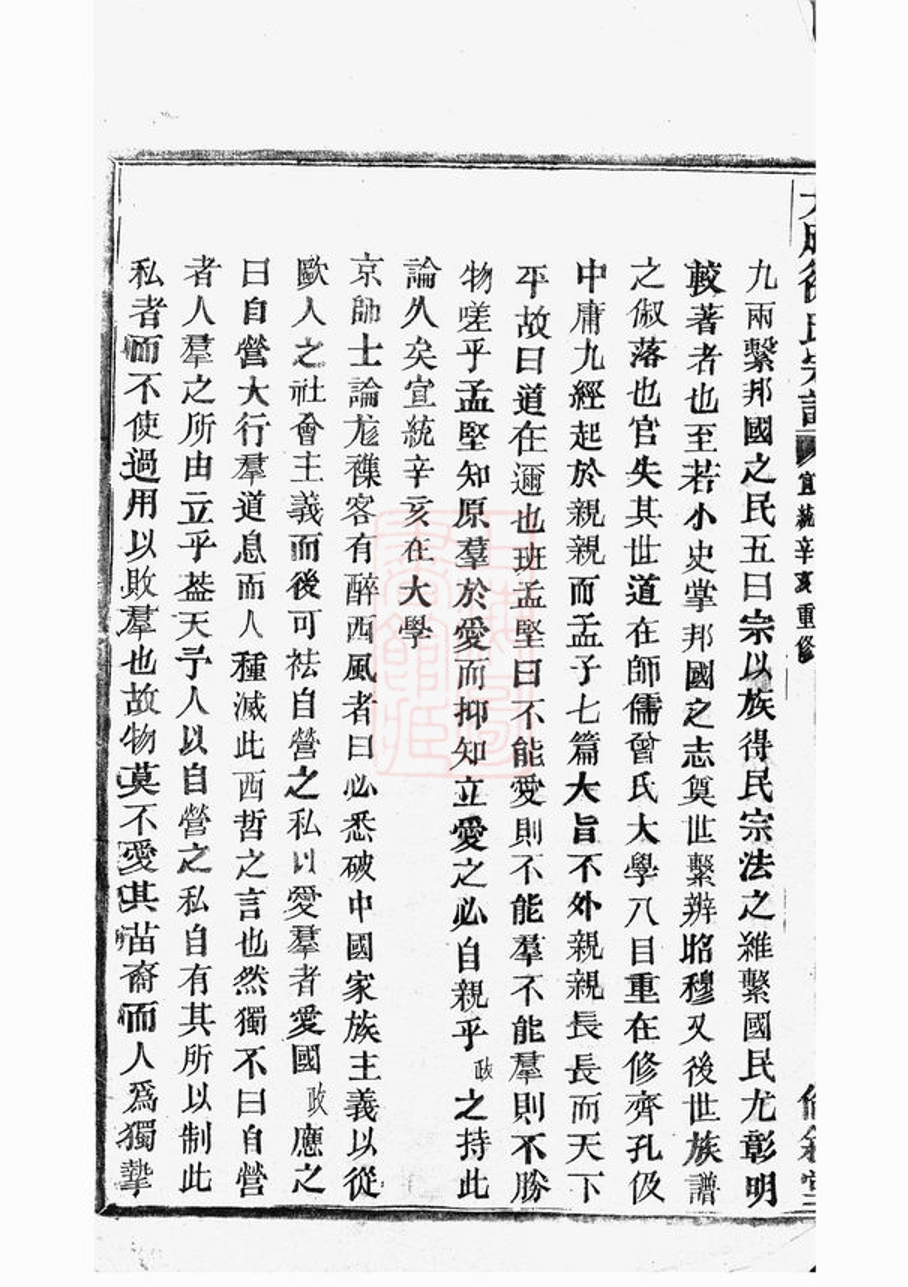 氏宗譜 宣統辛亥重修
九兩繫邦國之民五曰宗以族得民宗法之維繫國民尤彰明
較著者也至若小史掌邦國之志奠世繫辨昭穆又後世族譜
之俶落也官失其世道在師儒曾氏大學八目重在修齊孔伋
中庸九經起於親親而孟子七篇大旨不外親親長長而天下
平故曰道在邇也班孟堅曰不能愛則不能羣不能羣則不勝
物嗟乎孟堅知原羣於愛而抑知立愛之必自親乎政之持此
論久矣宣統辛亥在大學
京師士論尨襍客有醉西風者曰必悉破中國家族主義以從
歐人之社會主義而後可祛自營之私以愛羣者愛國政應之
曰自營大行羣道息而人種滅此西哲之言也然獨不曰自營
者人羣之所由立乎葢天予人以自營之私自有其所以制此
私者而不使過用以敗羣也故物莫不愛其苗裔而人爲獨摯